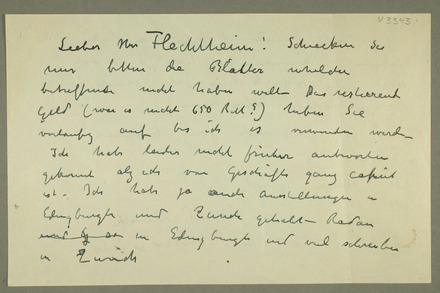 V 3343
Lieber Herr Flechtheim! Schicken Sie
mir bitte die Blätter welche
betreffende nicht haben will. Das restierende
Geld (war es nicht 650 RM?) haben Sie
vorläufig auf bis ich es verwenden werde
Ich habe leider nicht früher antworten
gekonnt als ich von Geschäfts ganz
ist. Ich habe ja auch Ausstellungen in
Edingburgh und Zürich gehabt
in Edingburgh und viel schreiben
in Zürich